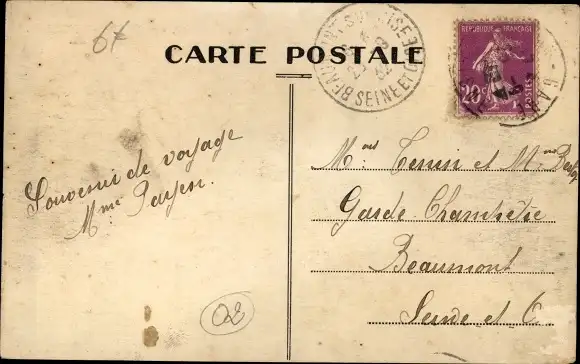 67
CARTE POSTALE
BEAUMONT-SUR-OISE
SEINE ET OISE
REPUBLIQUE FRANÇAISE
20c
POSTES
Souvenir de voyage
Mme Payen.
et Mme
Garde Champêtre
Beaumont
Seine et O.
02